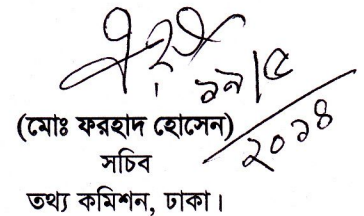 ১৯/৫/২০১৪
(মোঃ ফরহাদ হোসেন)
সচিব
তথ্য কমিশন, ঢাকা।